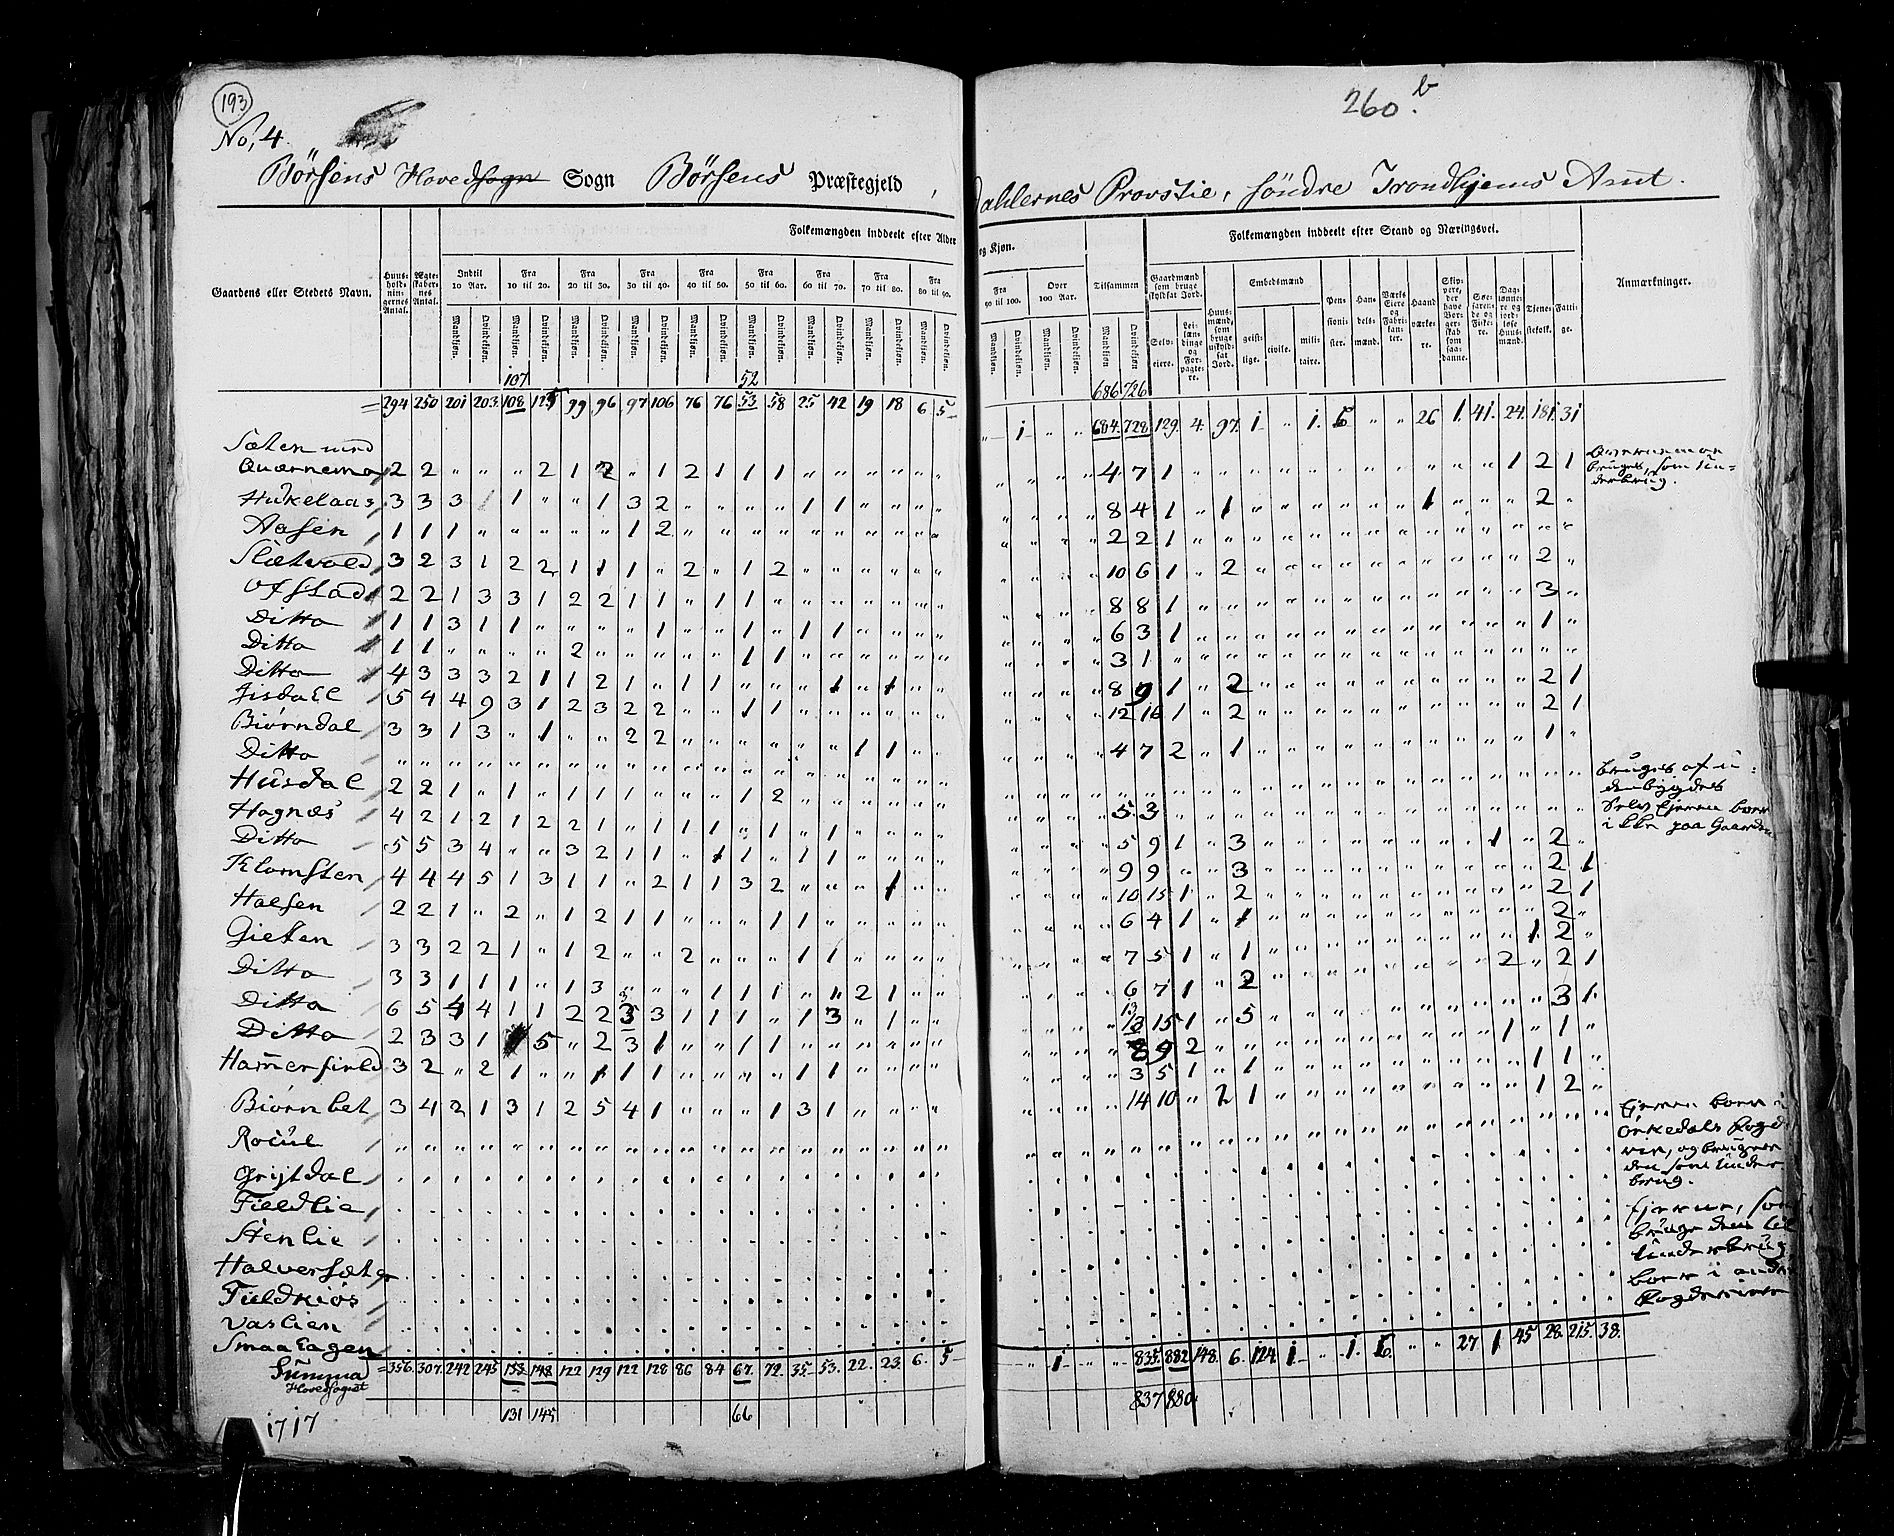 193
260.b
No, 4
Børsens Hovedsogn Sogn Børsens Præstegjeld, Dahlernes Provstie, søndre Trondhjems Amt.
Gaardens eller Stedets Navn.
Huusholdningernes Antal.
Ægteskabernes Antal.
Folkemængden inddeelt efter Alder og Kjøn.
Indtil 10 Aar.
Fra 10 til 20.
Fra 20 til 30.
Fra 30 til 40.
Fra 40 til 50.
Fra 50 til 60.
Fra 60 til 70.
Fra 70 til 80.
Fra 80 til 90.
Fra 90 til 100.
Over 100 Aar.
Tilsammen
Mandkjøn. Qvindekjøn.
Folkemængden inddeelt efter Stand og Næringsvei.
Gaardmænd som bruge skyldsat Jord.
Selveiere.
Leilændinge og Forpagtere.
Huusmænd, som bruge uskyldsat Jord.
Embedsmænd
geistlige. civile. militaire.
Pensionister.
Handelsmænd.
Værks Eiere og Fabrikanter.
Haandværkere.
Skippere, der have Borgerskab som saadanne.
Søefarende og Fiskere.
Daglønnere og jordløse Huusmænd.
Tjenestefolk.
Fattige.
Anmærkninger.
107 52 686 726
= 294 250 201 203 108 125 99 96 97 106 76 76 53 58 25 42 19 18 6 5 " 1 " " 684 728 129 4 97 1 " 1 5 " " 26 1 41 24 181 31
Sæten med
Quernemo 2 2 " " " 2 1 2 " 1 2 1 1 1 " " " " " " 4 7 1 1 2 1
Hukelaas 3 3 3 1 " " 1 3 2 " " " " 1 1 " " " " 8 4 1 " 1 1 2
Aasen 1 1 1 " " " " " 1 2 " " " " " " " " " " 2 2 1
Sletvold 3 2 3 1 2 2 1 1 1 " 2 " 1 2 " " " " " " 10 6 1 " 2 2
Ofstad 2 2 1 3 3 1 2 2 1 1 " 1 1 " " " " " " " 8 8 1 3
Ditto 1 1 3 1 1 " " " " 1 " " 1 " 1 1 " " " " 6 3 1 1
Ditto 1 1 " " " " 2 " " " " " 1 1 " " " " " " 3 1
Ditto 4 3 3 3 2 1 1 2 1 " 1 1 " " " 1 " 1 " " 8 9 1 " 2 2 1
5 4 4 9 3 1 2 3 2 2 " " 1 1 " " " " " " 12 16 1 " 2 2 1
Biørndal 3 3 1 3 " 1 " " 2 2 " " " " " " 1 1 " " 4 7 2 " 1 1
Ditto
Husdal 2 2 1 " 1 " 1 1 1 " " " 1 2 " " " " " " 5 3
Hognæs 4 2 1 2 1 2 2 1 " 1 1 1 " 1 " 1 " " " " 5 9 1 " 3 1 2
Ditto 5 5 3 4 " " 3 2 1 1 " 1 1 " 1 1 " " " " 9 9 " " 3 2 1
Klomsten 4 4 4 5 1 3 1 1 " 2 1 1 3 2 " " " 1 " " 10 15 1 " 2 2 1
Halsen 2 2 1 " 2 " 1 2 1 1 " " " 1 1 " " " " " 6 4 1 " 1 2
Gieten 3 3 2 2 1 " 1 2 " " 2 " " " 1 1 " " " " 7 5 1 " 1 1 2
Ditto 3 3 1 1 1 " 1 3 " " " 1 1 1 " " 2 1 " " 6 7 1 " 2 2 " 2 1
Ditto 6 5 4 4 1 1 2 2 3 3 1 1 1 " 1 3 " 1 " " 13 15 1 " 5 3 1
Ditto 2 3 3 1 1 5 " 2 3 1 " " 1 1 " " " " " " 8 9 2 1 " 1
Hammerfield 3 2 " 2 1 " " 1 1 1 " " " " 1 1 " " " " 3 5 1 " 1 1 1
Biørnbet 3 4 2 1 3 1 2 5 4 1 " " " 1 3 1 " " " " 14 10 " 2 1 1 2
Grijtdal
Fieldlie
Stenlie
Halversæter
Vaslien
Smaa Eagen
Summa = 356. 307. 242 245 153 148 122 129 122 128 86 84 67. 72. 35. 53. 22. 23. 6. 5 " 1 " " 835. 882 148. 6. 124 1 " 1. 6. " " 27 1 45 28. 215. 38.
Hovedsognet
131 145 66 837 880
1717
bruges, som Underbrug.
bruges af
Selv Ejeren boer
ikke paa Gaarden
Ejeren boer i
Orkedals Fogderie, og bruger
den som Underbrug.
Ejerne, som
bruge dem til
Underbrug,
boer i andre
Fogderier